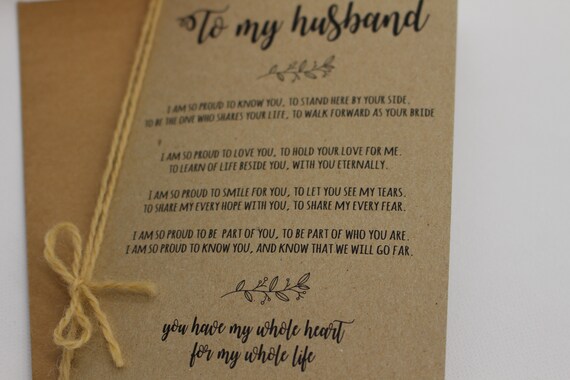 To my husband
I AM SO PROUD TO KNOW YOU, TO STAND HERE BY YOUR SIDE,
TO BE THE ONE WHO SHARES YOUR LIFE, TO WALK FORWARD AS YOUR BRIDE
I AM SO PROUD TO LOVE YOU, TO HOLD YOUR LOVE FOR ME.
TO LEARN OF LIFE BESIDE YOU, WITH YOU ETERNALLY.
I AM SO PROUD TO SMILE FOR YOU, TO LET YOU SEE MY TEARS.
TO SHARE MY EVERY HOPE WITH YOU, TO SHARE MY EVERY FEAR.
I AM SO PROUD TO BE PART OF YOU, TO BE PART OF WHO YOU ARE.
I AM SO PROUD TO KNOW YOU, AND KNOW THAT WE WILL GO FAR.
you have my whole heart
for my whole life